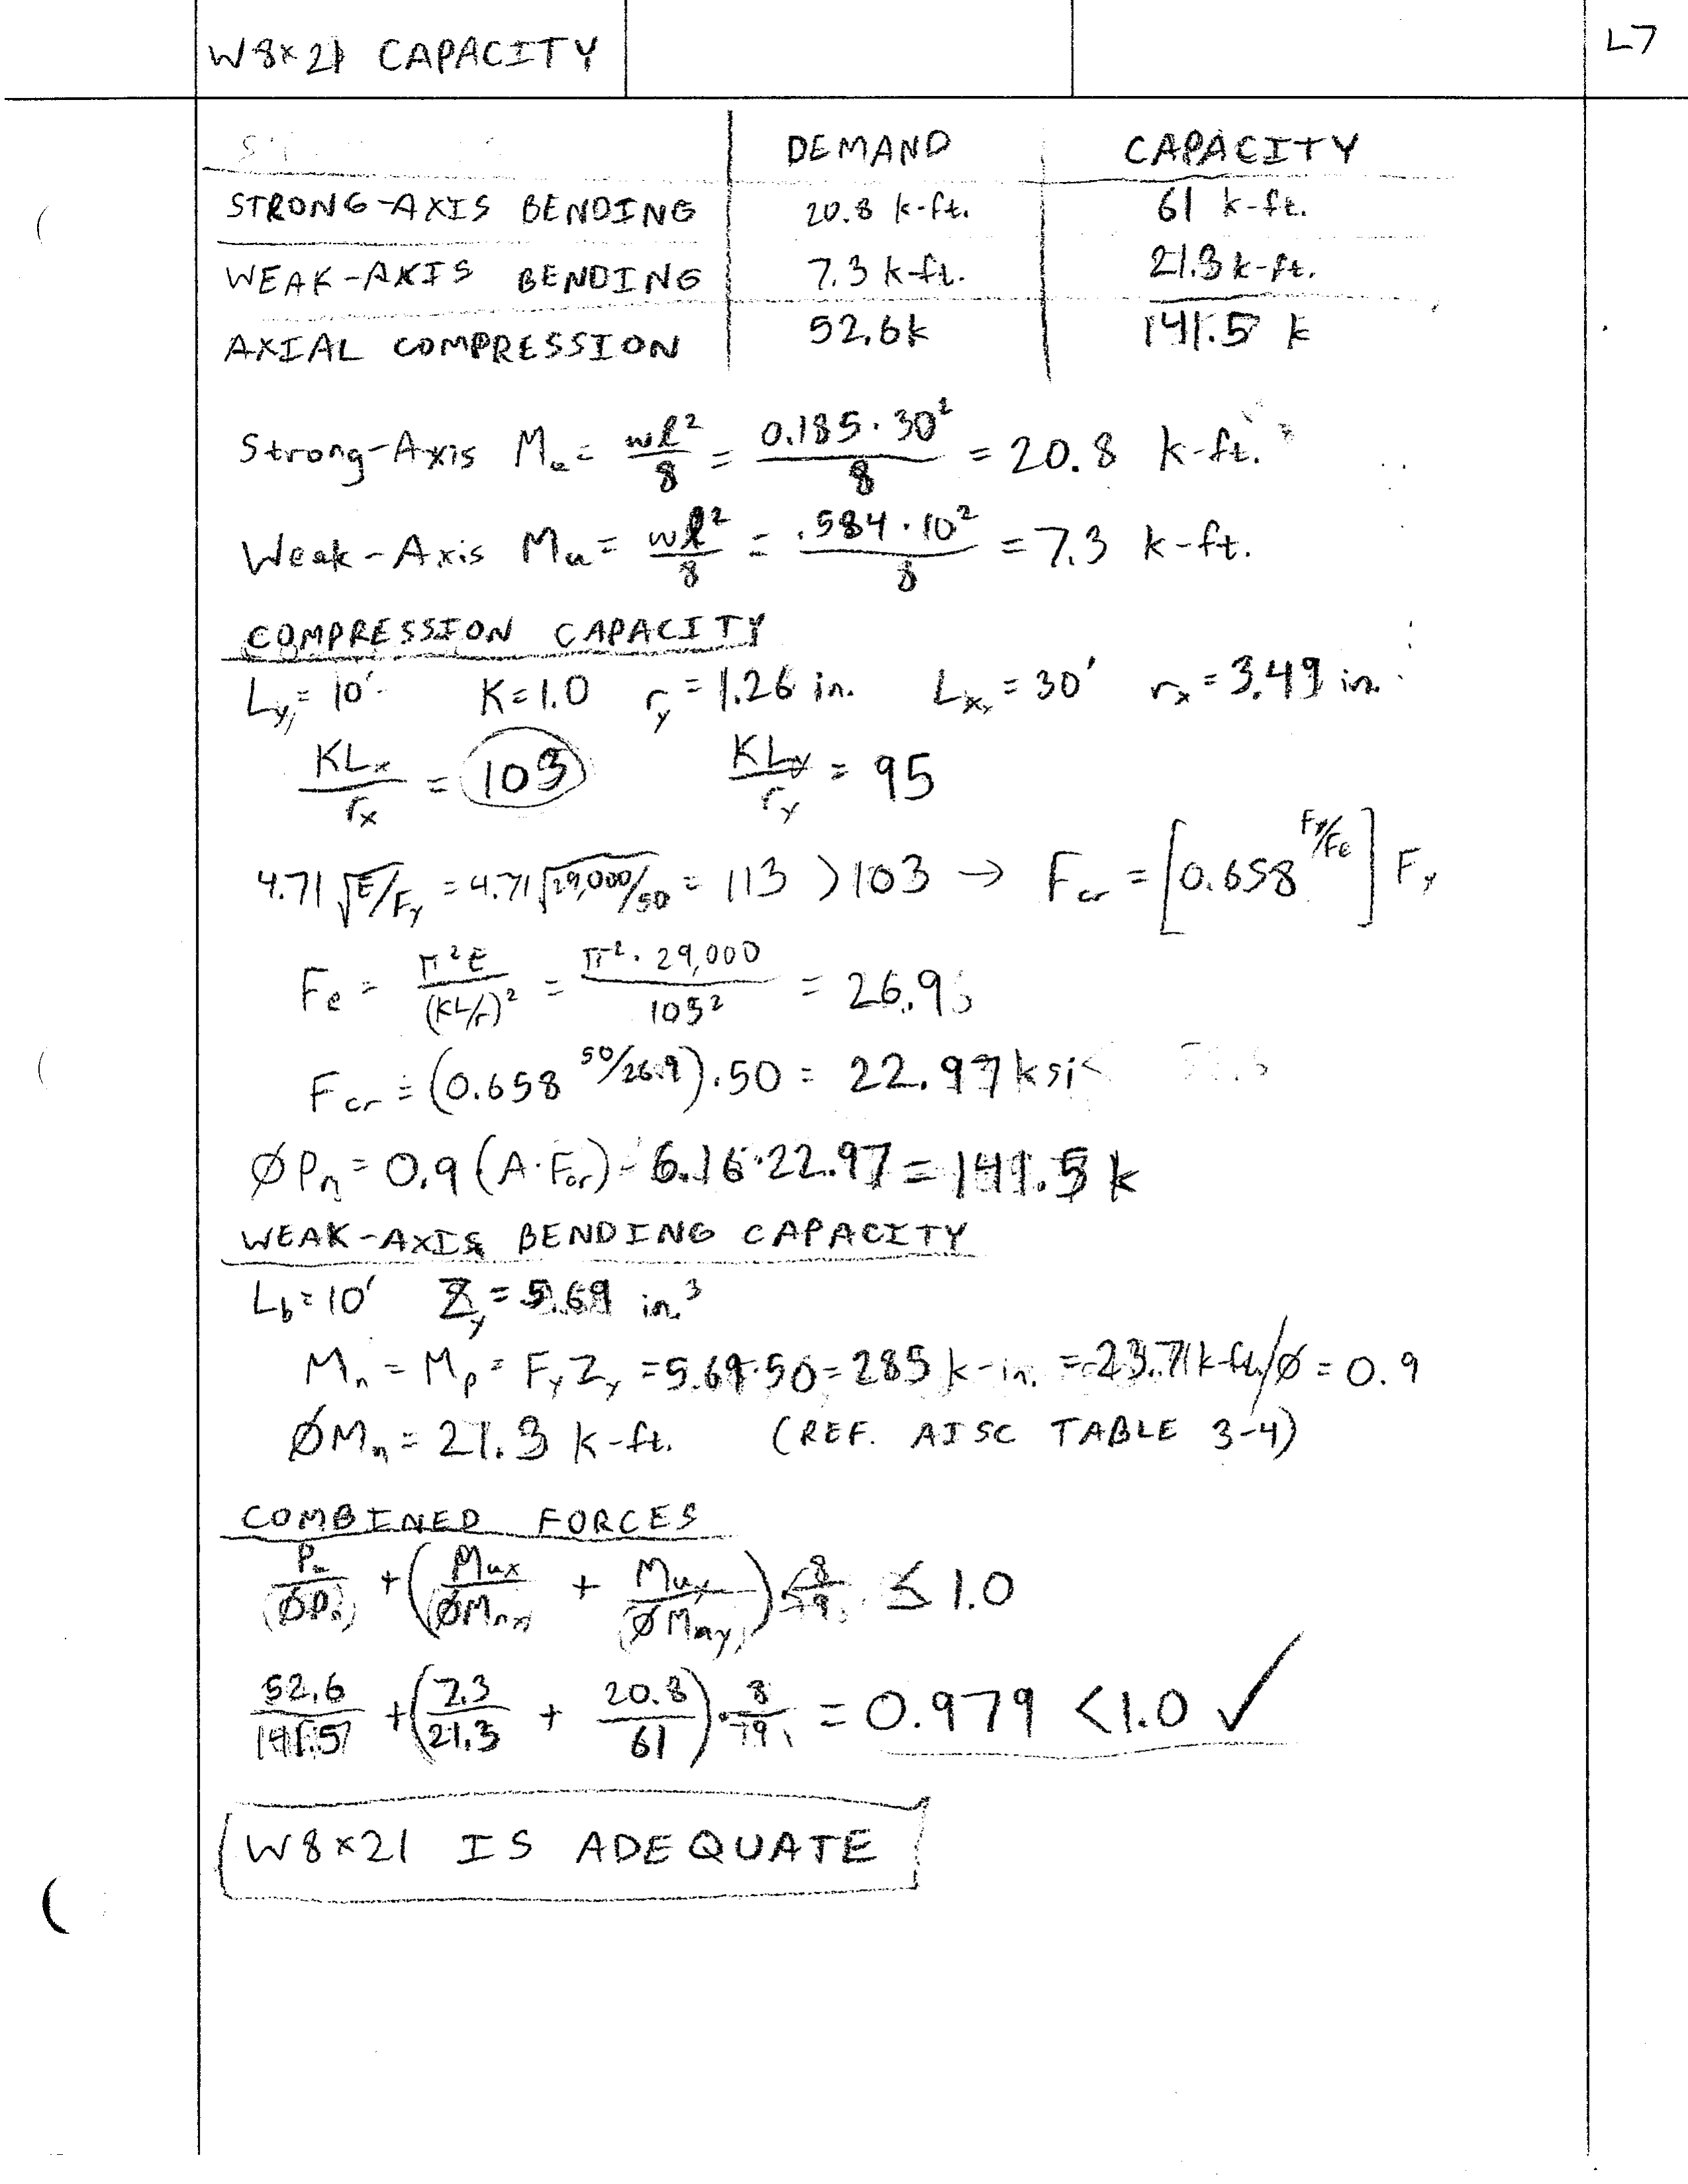 W8x21 CAPACITY L7
DEMAND CAPACITY
STRONG-AXIS BENDING 20.8 k-ft. 61 k-ft.
WEAK-AXIS BENDING 7.3 k-ft. 21.3 k-ft.
AXIAL COMPRESSION 52.6k 141.5 k
Strong-Axis Mu = wl²/8 = 0.185·30²/8 = 20.8 k-ft.
Weak-Axis Mu = wl²/8 = .584·10²/8 = 7.3 k-ft.
COMPRESSION CAPACITY
Ly = 10' K=1.0 ry = 1.26 in. Lx = 30' rx = 3.49 in.
KLx/rx = 103 KLy/ry = 95
4.71 √E/Fy = 4.71 √29,000/50 = 113 > 103 → Fcr = [0.658^Fy/Fe] Fy
Fe = π²E/(KL/r)² = π²·29,000/103² = 26.9
Fcr = (0.658^50/26.9)·50 = 22.97 ksi
ØPn = 0.9 (A·Fcr) = 6.16·22.97 = 141.5 k
WEAK-AXIS BENDING CAPACITY
Lb = 10' Zy = 5.69 in.³
Mn = Mp = FyZy = 5.69·50 = 285 k-in. = 23.71 k-ft. / Ø = 0.9
ØMn = 21.3 k-ft. (REF. AISC TABLE 3-4)
COMBINED FORCES
Pu/(ØPn) + (Mux/(ØMnx) + Muy/(ØMny)) 8/9 ≤ 1.0
52.6/141.5 + (7.3/21.3 + 20.8/61)·8/9 = 0.979 < 1.0 ✓
W8x21 IS ADEQUATE